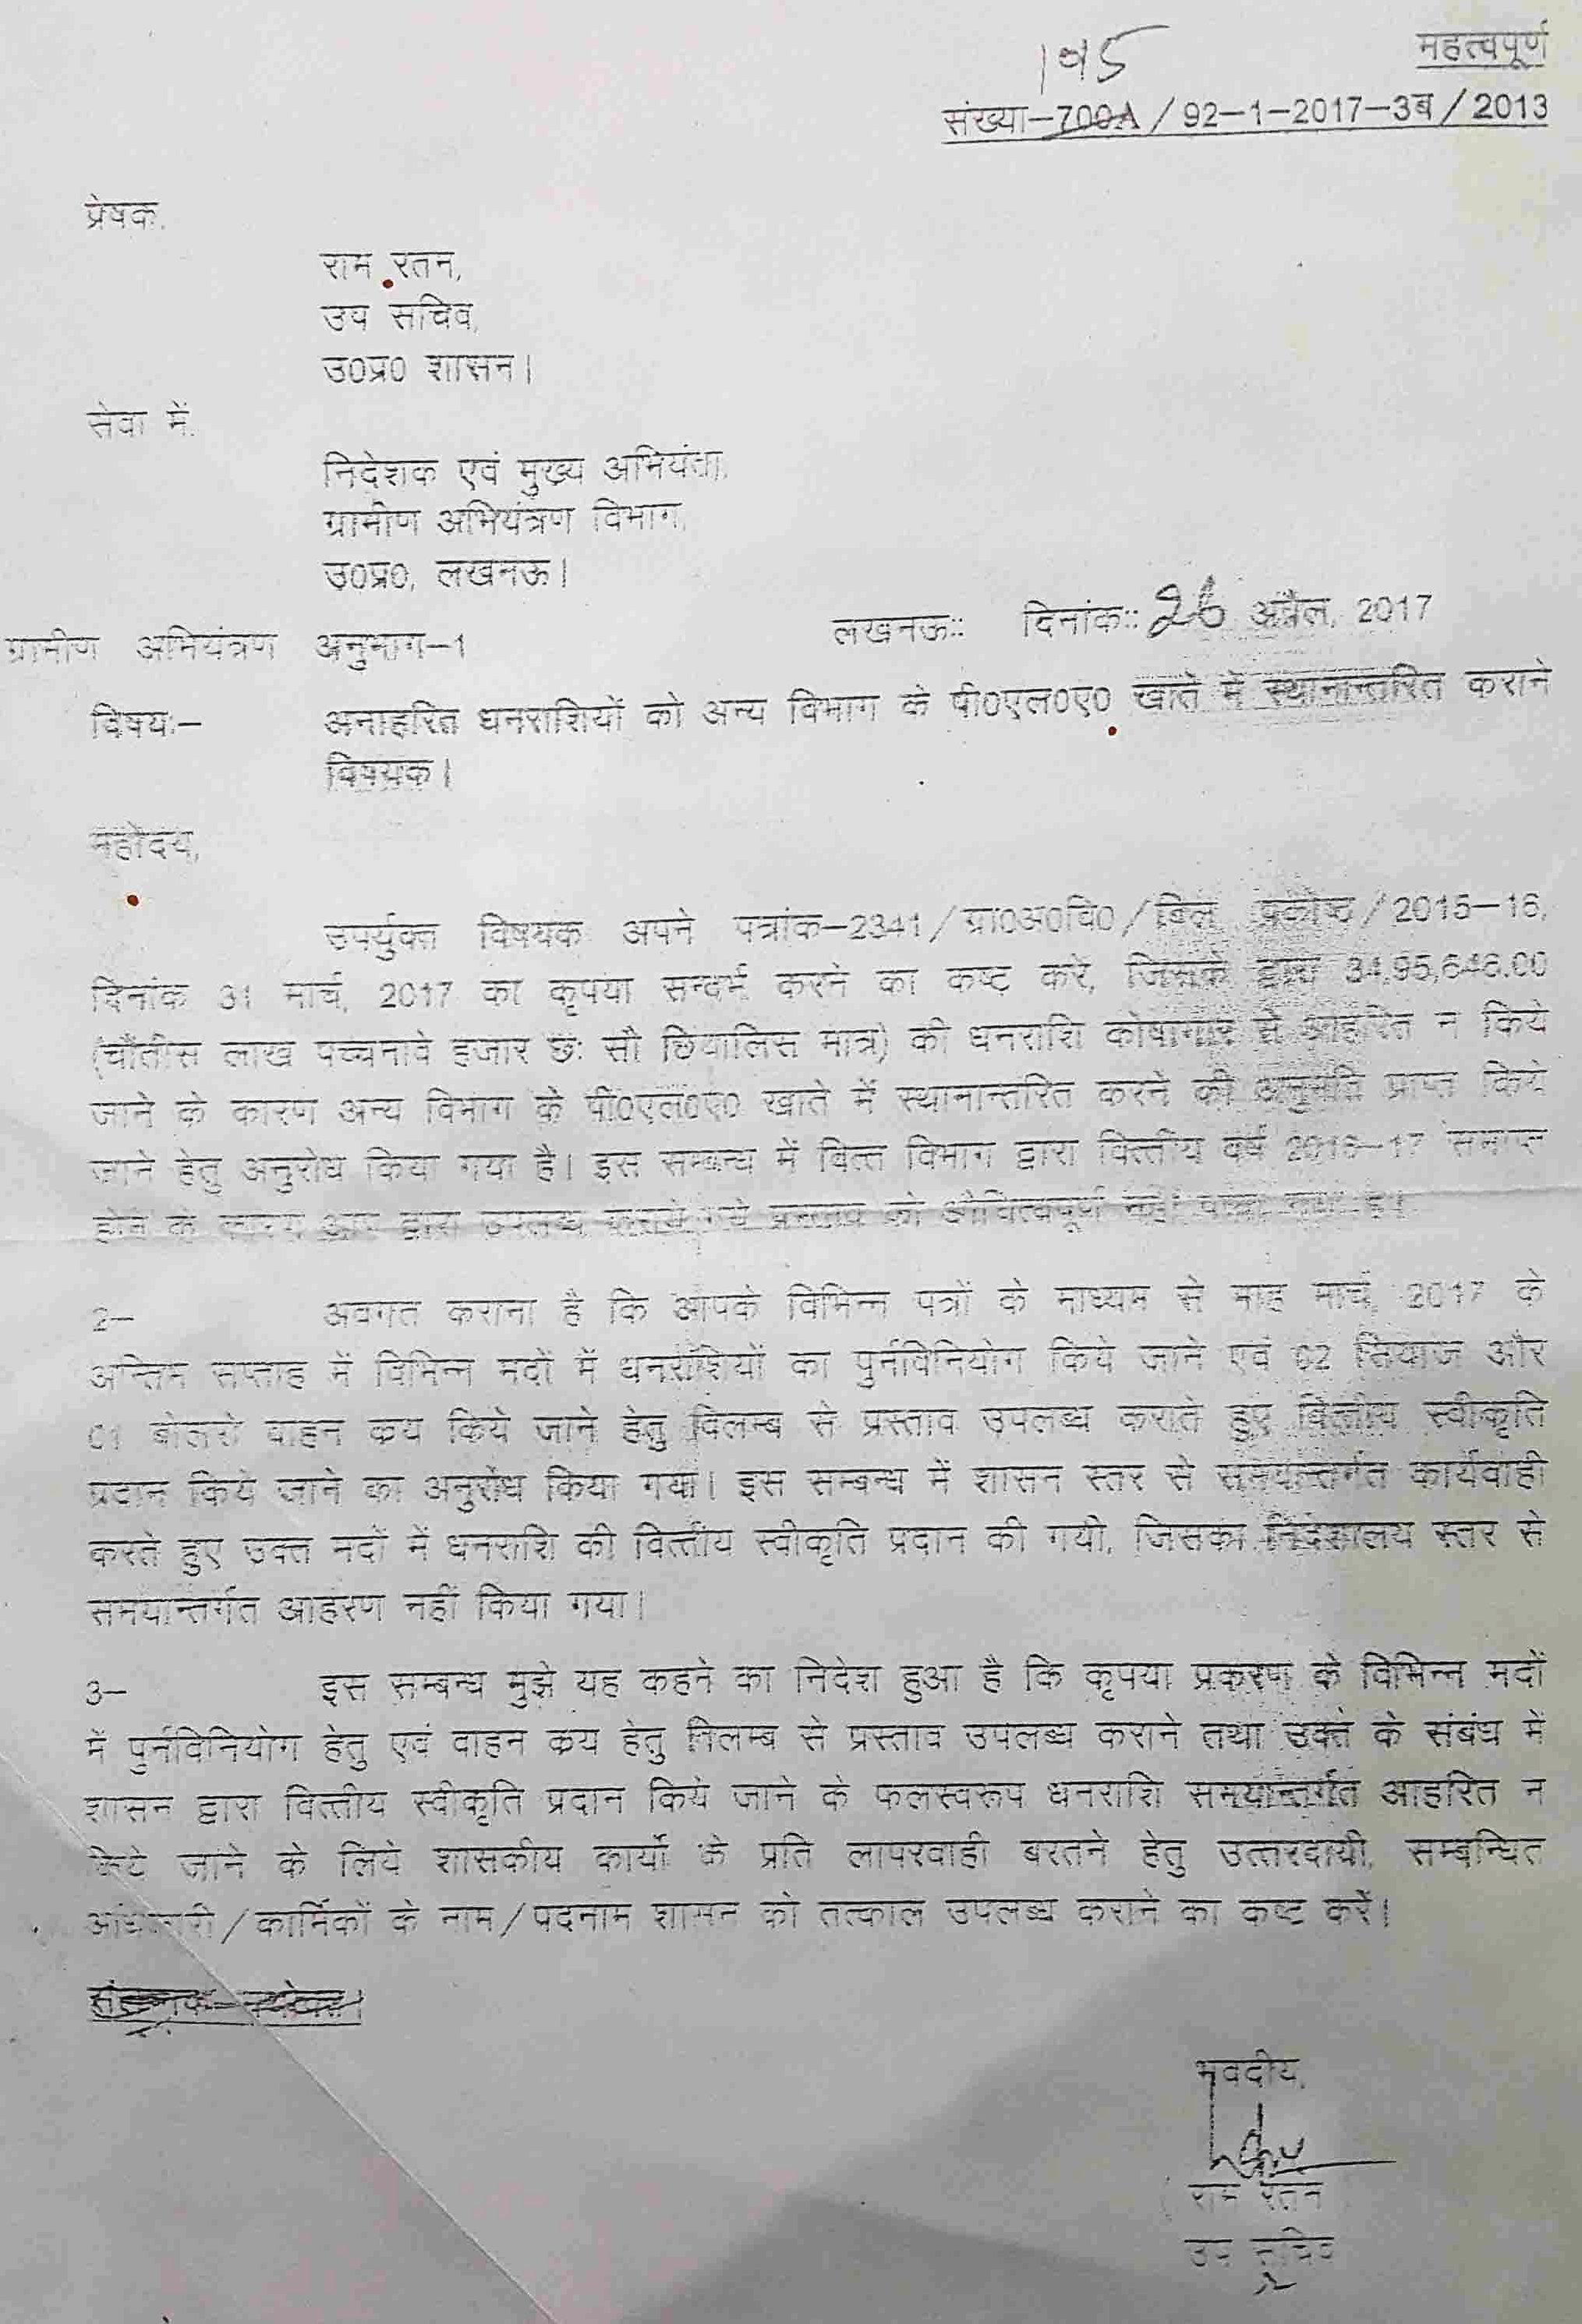 195
महत्वपूर्ण
संख्या–700A / 92–1–2017–3ब / 2013
प्रेषक,
राम रतन,
उप सचिव,
उ०प्र० शासन।
सेवा में,
निदेशक एवं मुख्य अभियंता,
ग्रामीण अभियंत्रण विभाग,
उ०प्र०, लखनऊ।
ग्रामीण अभियंत्रण अनुभाग–1 लखनऊः: दिनांकः: 26 अप्रैल, 2017
विषयः– अनाहरित धनराशियों को अन्य विभाग के पी०एल०ए० खाते में स्थानान्तरित कराने
विषयक।
महोदय,
उपर्युक्त विषयक अपने पत्रांक–2341 / ग्रा०अ०वि० / बिल प्रकोष्ठ / 2015–16,
दिनांक 31 मार्च, 2017 का कृपया सन्दर्भ करने का कष्ट करें, जिसके द्वारा 34,95,646.00
(चौंतीस लाख पच्चनावे हजार छः सौ छियालिस मात्र) की धनराशि कोषागार से आहरित न किये
जाने के कारण अन्य विभाग के पी०एल०ए० खाते में स्थानान्तरित करने की अनुमति प्राप्त किये
जाने हेतु अनुरोध किया गया है। इस सम्बन्ध में वित्त विभाग द्वारा वित्तीय वर्ष 2016–17 समाप्त
होने के कारण आप द्वारा उपलब्ध कराये गये प्रस्ताव को औचित्यपूर्ण नहीं पाया गया है।
2– अवगत कराना है कि आपके विभिन्न पत्रों के माध्यम से माह मार्च, 2017 के
अन्तिम सप्ताह में विभिन्न मदों में धनराशियों का पुर्नविनियोग किये जाने एवं 02 सियाज और
01 बोलेरो वाहन क्रय किये जाने हेतु विलम्ब से प्रस्ताव उपलब्ध कराते हुए वित्तीय स्वीकृति
प्रदान किये जाने का अनुरोध किया गया। इस सम्बन्ध में शासन स्तर से समयान्तर्गत कार्यवाही
करते हुए उक्त मदों में धनराशि की वित्तीय स्वीकृति प्रदान की गयी, जिसका निदेशालय स्तर से
समयान्तर्गत आहरण नहीं किया गया।
3– इस सम्बन्ध मुझे यह कहने का निदेश हुआ है कि कृपया प्रकरण के विभिन्न मदों
में पुर्नविनियोग हेतु एवं वाहन क्रय हेतु विलम्ब से प्रस्ताव उपलब्ध कराने तथा उक्त के संबंध में
शासन द्वारा वित्तीय स्वीकृति प्रदान किये जाने के फलस्वरूप धनराशि समयान्तर्गत आहरित न
किये जाने के लिये शासकीय कार्यो के प्रति लापरवाही बरतने हेतु उत्तरदायी, सम्बन्धित
अधिकारी / कार्मिकों के नाम / पदनाम शासन को तत्काल उपलब्ध कराने का कष्ट करें।
संलग्नक–यथोक्त।
भवदीय,
राम रतन
उप सचिव